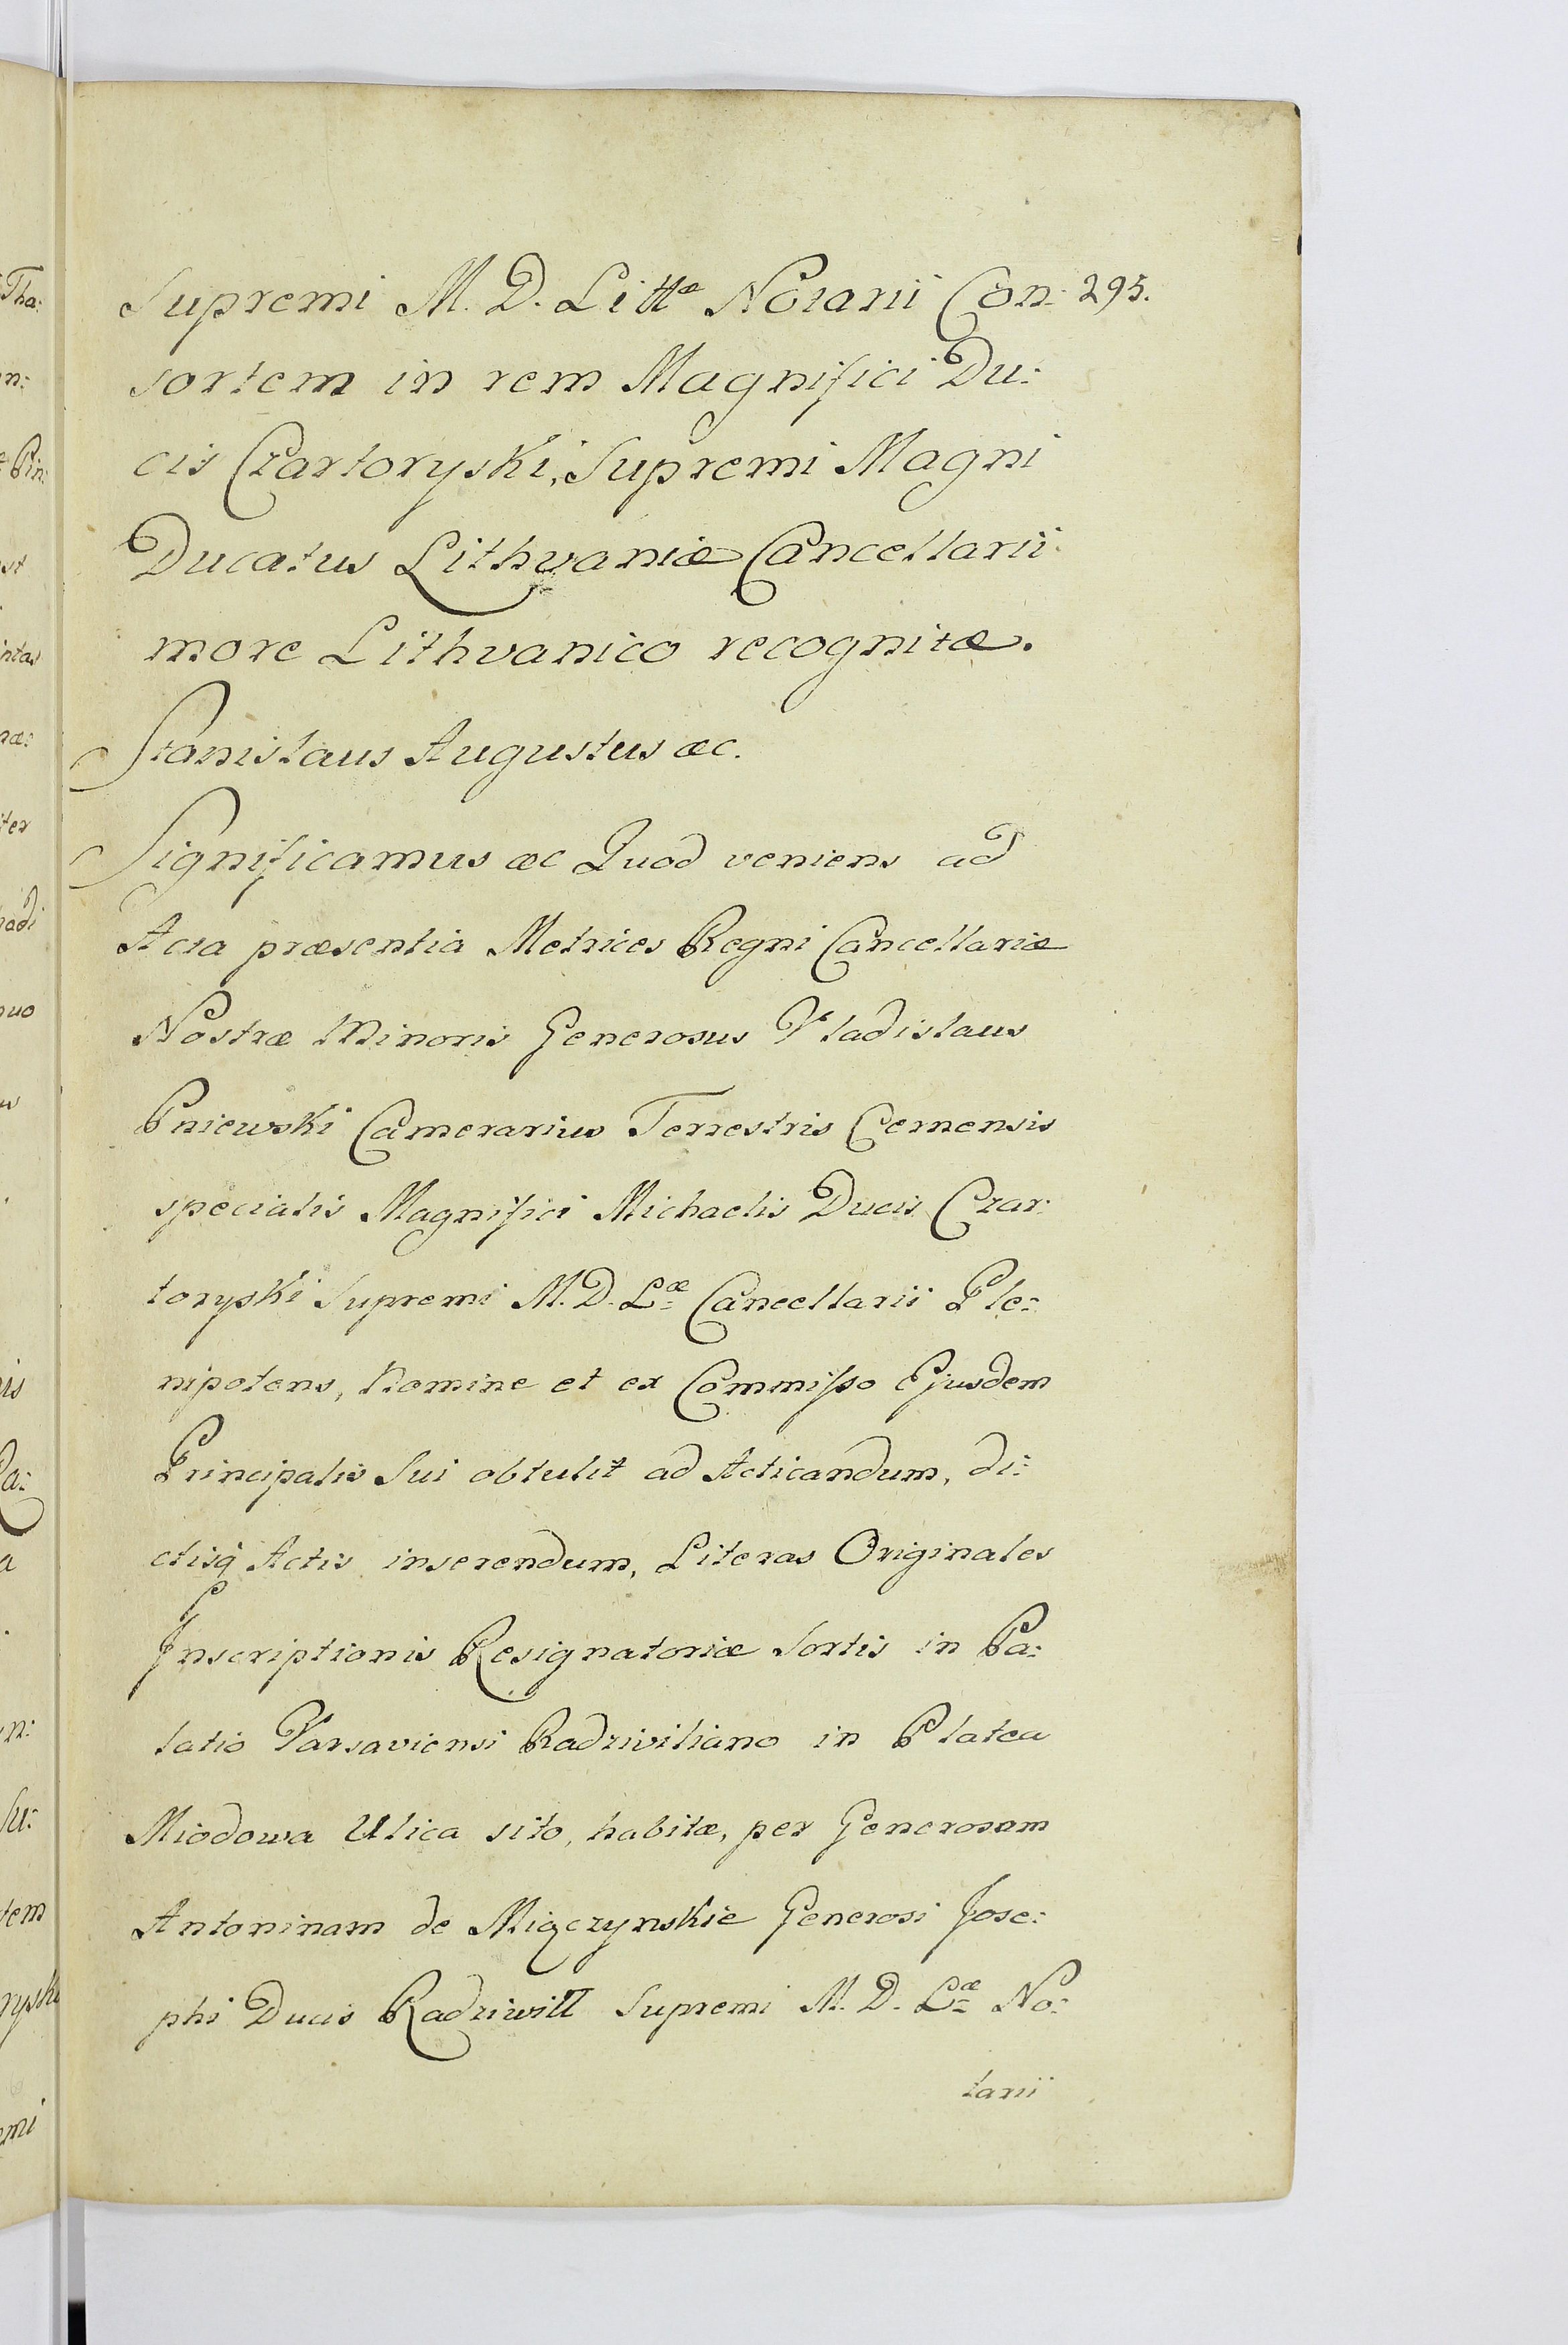 Supremi M. D. Littæ Notarii Con: 295.
sortem in rem Magnifici Du:
cis Czartoryski, Supremi Magni
Ducatus Lithvaniæ Cancellarii
more Lithvanico recognitæ.
Stanislaus Augustus æc.
Significamus æc Quod veniens ad
Acta præsentia Metrices Regni Cancellariæ
Nostræ Minoris Generosus Vladislaus
Pniewski Camerarius Terrestris Cernensis
specialis Magnifici Michaelis Ducis Czar:
toryski Supremi M. D. Læ Cancellarii Ple:
nipotens, Nomine et ex Commisso Ejusdem
Principalis Sui obtulit ad Acticandum, di:
ctisq Actis inserendum, Literas Originales
Inscriptionis Resignatoriæ Sortis in Pa:
latio Varsaviensi Radziviliano in Platea
Miodowa Ulica sito, habitæ, per Generosam
Antoninam de Miączynskie Generosi Jose:
phi Ducis Radziwiłł Supremi M. D. Læ No:
tarii